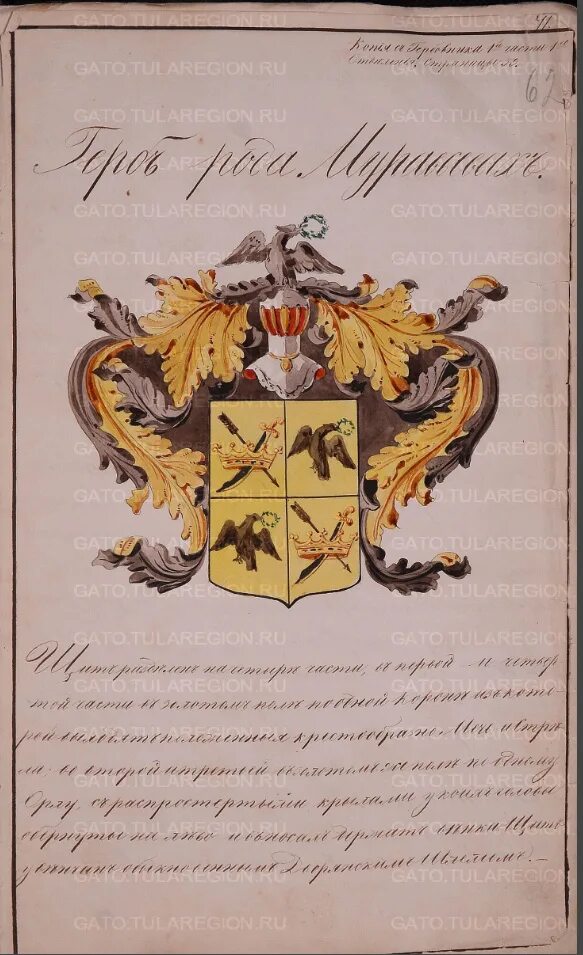 71
Копія съ Гербовника 1й части 1го
Отдѣленія. Страницы 52.
62
Гербъ рода Муравьевыхъ.
Щитъ раздѣленъ на четыре части, въ первой и четвер
той части въ золотомъ полѣ по одной Коронѣ изъ кото
рой выходятъ положенныя крестообразно Мечь и Стрѣ
ла; во второй и третьей въ золотомъ же полѣ по одному
Орлу, съ распростертыми крылами у коихъ головы
обернуты на лѣво и въ носахъ держатъ вѣнки. Щитъ
увѣнчанъ обыкновеннымъ Дворянскимъ Шлемомъ.
GATO.TULAREGION.RU